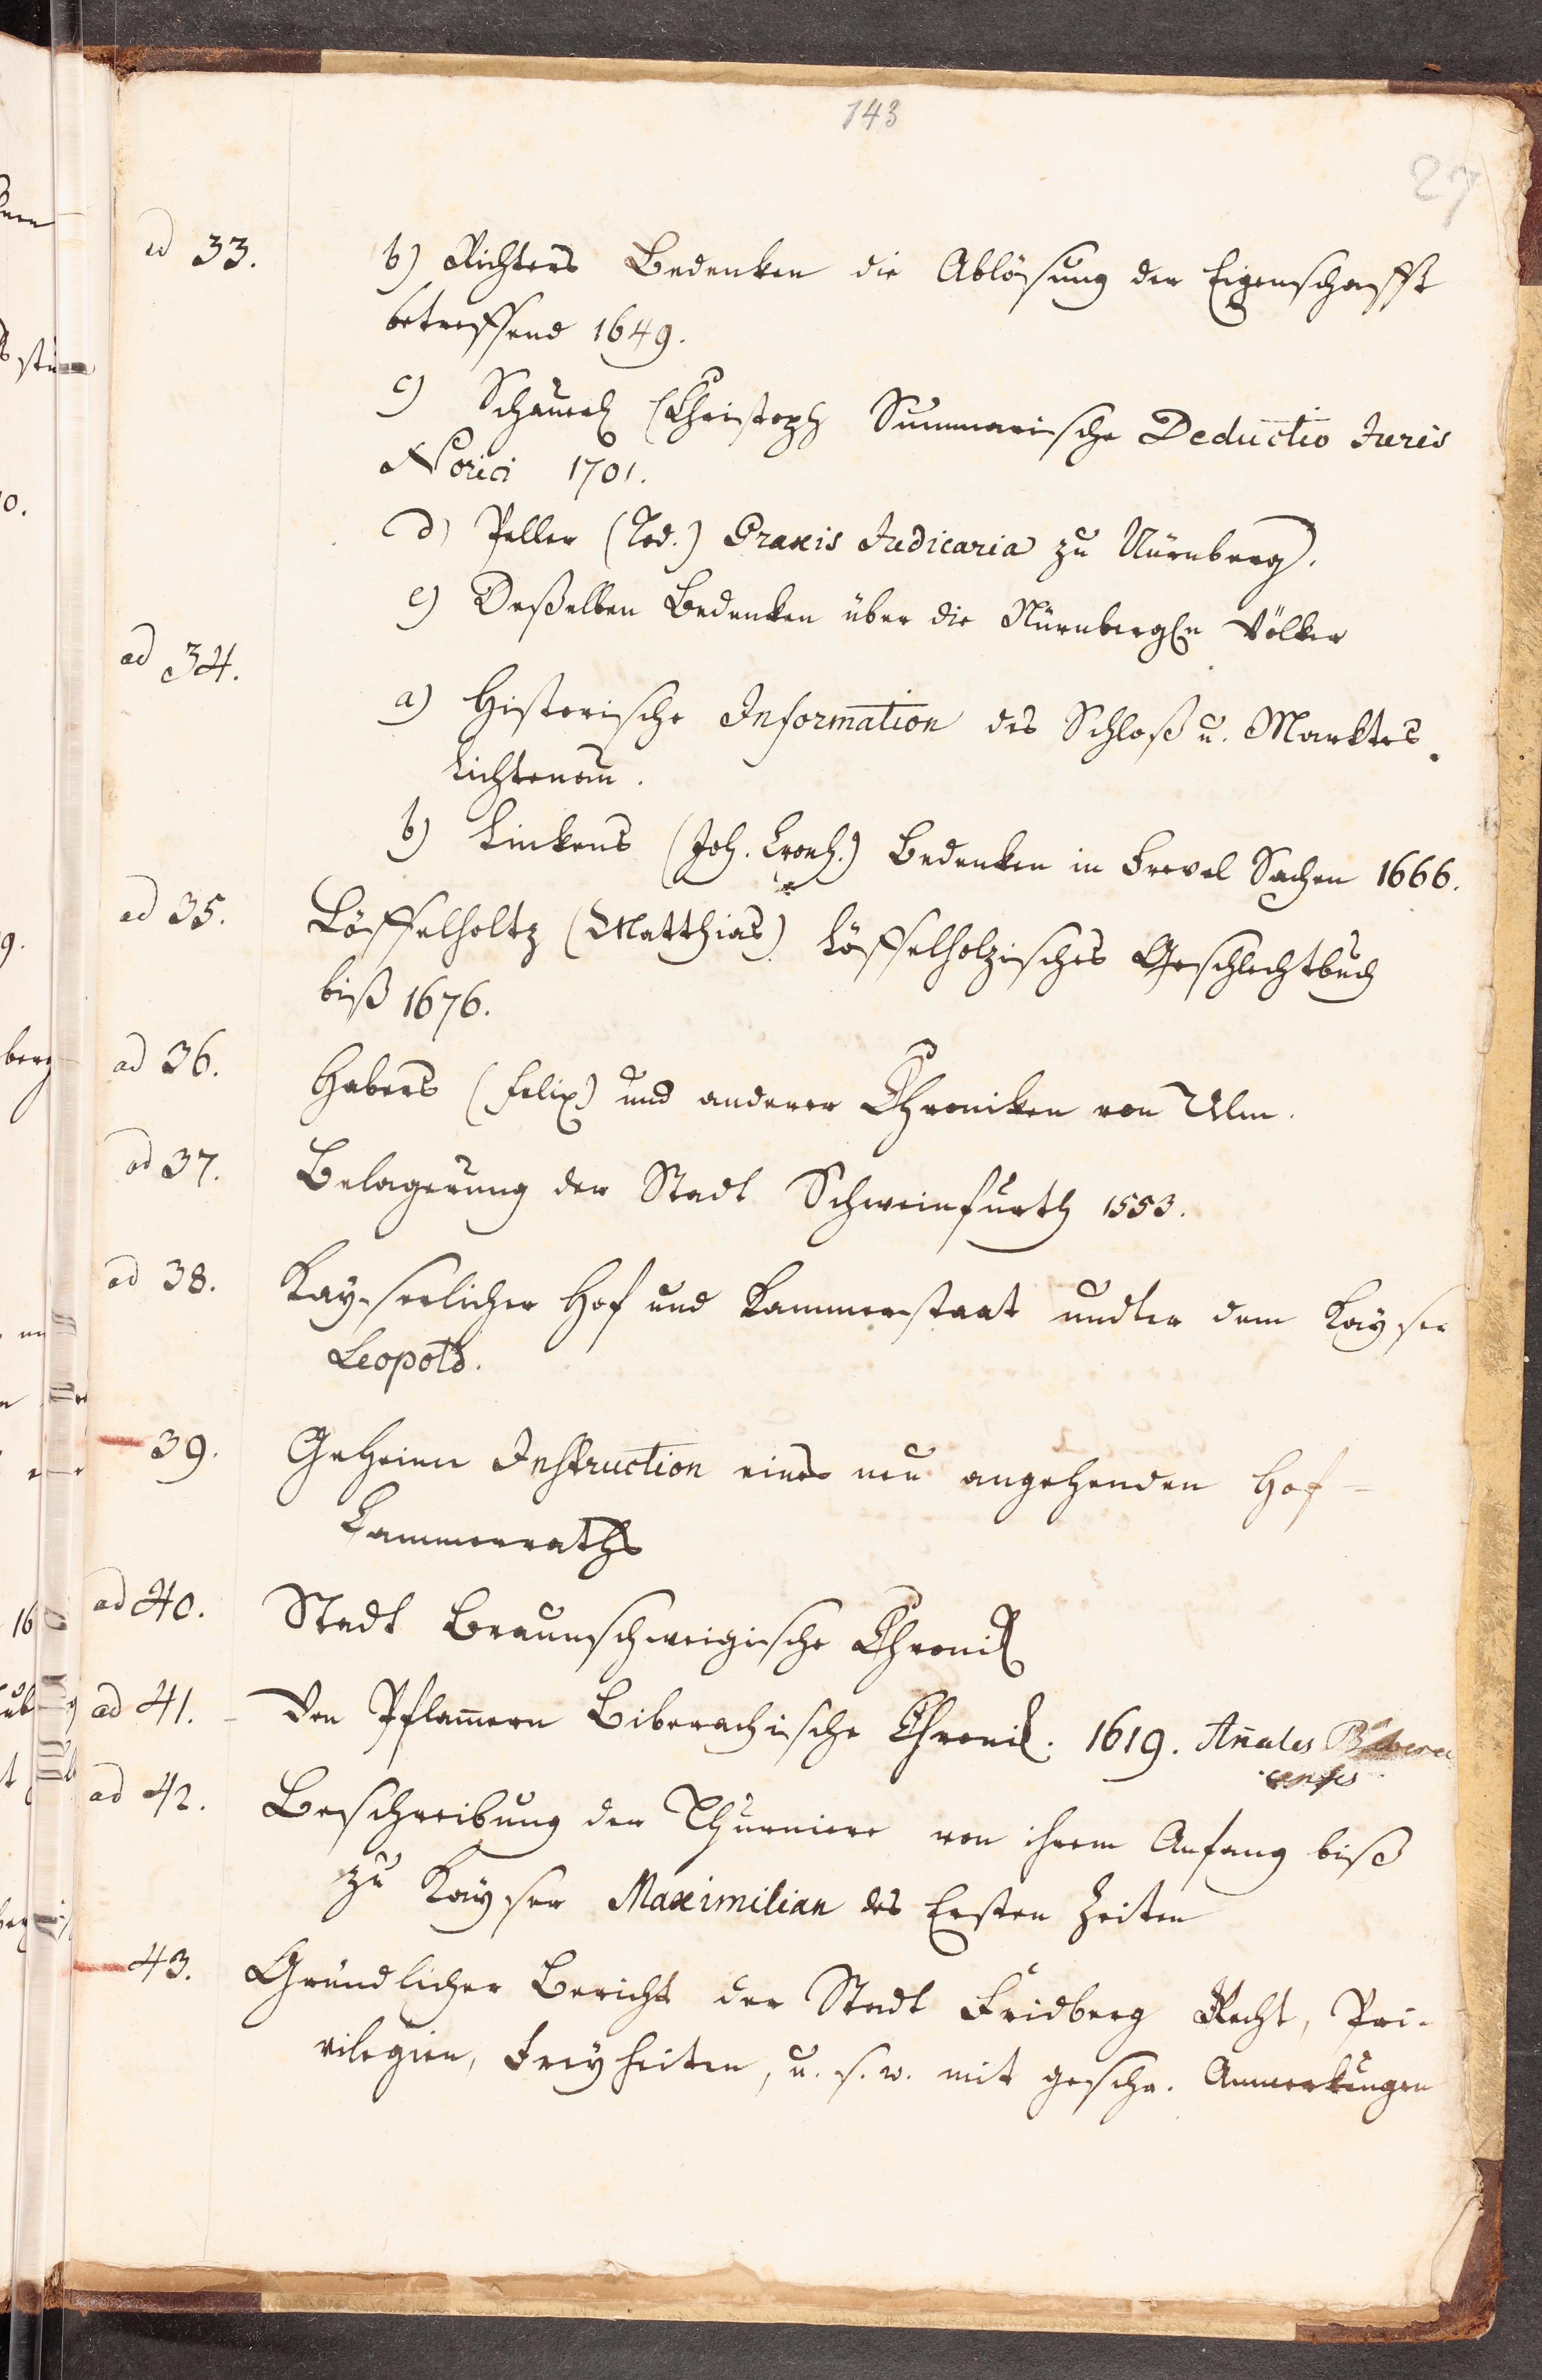 143
27
ad 33. b) Richters Bedenken die Ablösung der Eigenschafft
betreffend 1649.
c) Scheurl (Christoph Summarische Deductio Juris
Norici 1701.
d) Peller (Tod.) Praxis Judicaria zu Nürnberg.
e) Deßelben Bedenken über die Nürnbergen Völker
ad 34.
a) Historische Information des Schloß u. Marktes
Lichtenau.
b) Linkens (Joh. ) Bedenken in Frevel Sachen 1666.
ad 35. Löffelholtz (Matthias) Löffelholzisches Geschlechtbuch
biß 1676.
ad 36. Habers (Felix) und anderer Chroniken von Ulm.
ad 37. Belagerung der Stadt Schweinfurth 1553.
ad 38. Kayserlicher Hof und Kammerstaat undter dem Kayser
Leopold.
39. Geheime Instruction eines neu angehenden Hof-
Kammerraths
ad 40. Stadt Braunschweigische Chronik
ad 41. Von Pflam̄ern Biberachische Chronik. 1619. Añales Biberacenses
ad 42. Beschreibung der Thurniere von ihrem Anfang biß
zu Kayser Maximilian des Ersten Zeiten
43. Gründlicher Bericht der Stadt Fridberg Recht, Pri-
vilegien, Freyheiten, u. s. w. mit geschr. Anmerkungen